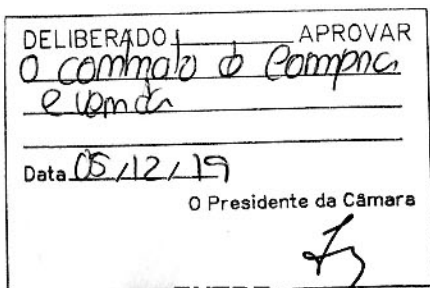 DELIBERADO APROVAR
O contrato d Compra
e venda
Data 05/12/19
O Presidente da Câmara